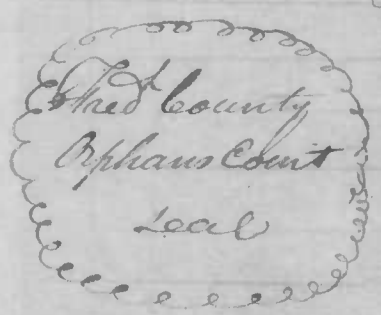 Fredk County
Orphans Court
Seal